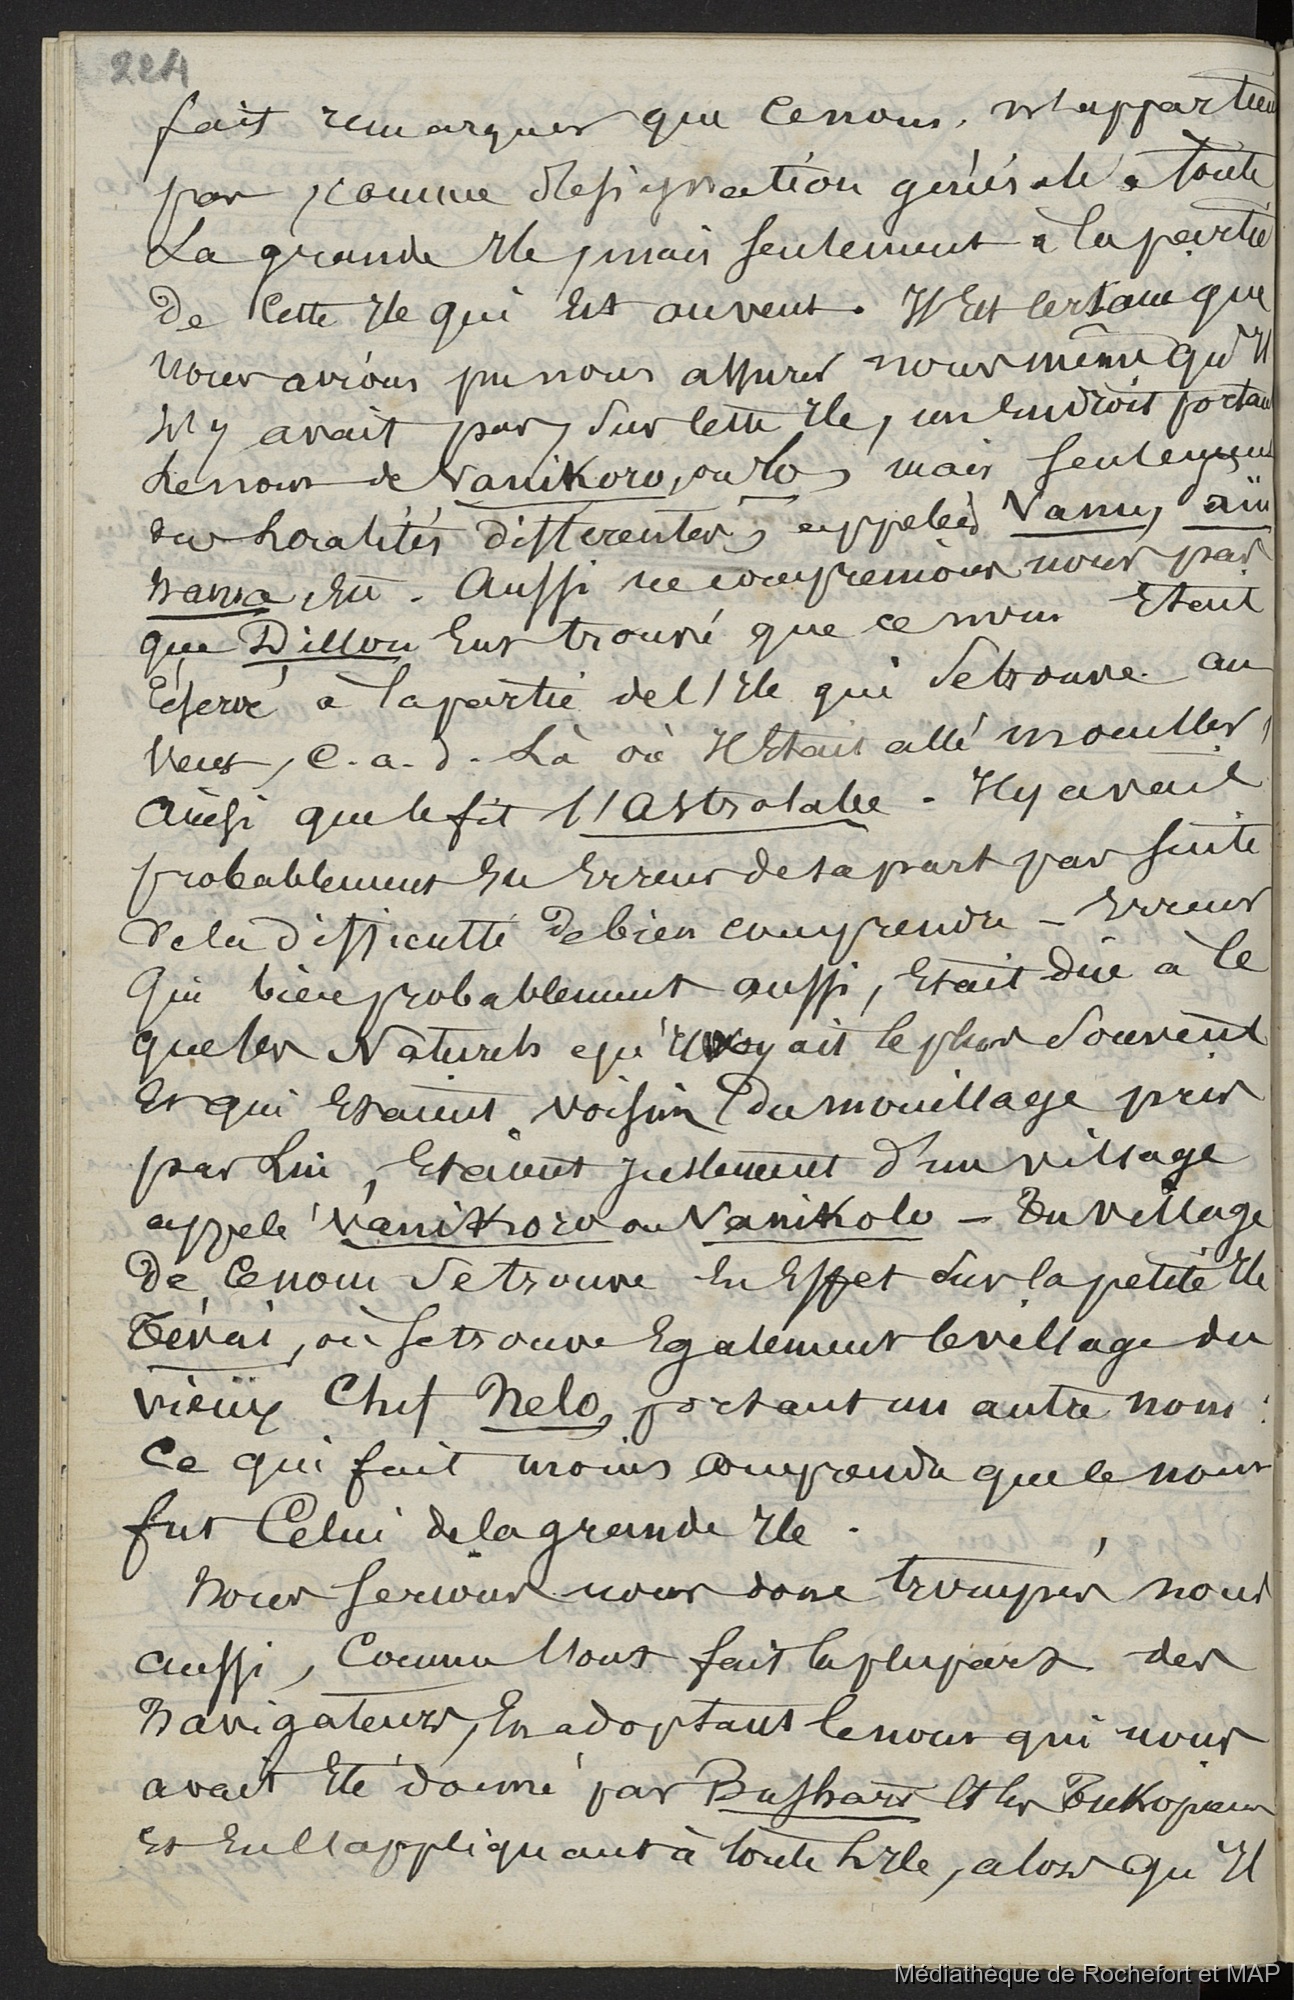 224
fait remarquer que ce nom, n'appartient
pas, comme designation générale à toute
La grande Ile, mais seulement à la partie
De cette Ile qui Est au vent. Il Est certain que
Nous avions pu nous assurer nous même qu'Il
N'y avait pas, sur cette Ile, un Endroit portant
Le nom de Vanikoro, ou lo, mais seulement
des Localités différentes, appelées Vanu,
Nama, Etc. Aussi ne comprenions nous pas
que Dillon Eut trouvé que ce nom Etait
réservé à la partie de l'Ile qui se trouve au
Vent, c.a.d. Là où Il Etait allé mouiller,
Ainsi que le fit l'Astrolabe. Il y avait
probablement Eu Erreur de sa part par suite
De la Difficulté De bien comprendre – Erreur
Qui bien probablement aussi, Etait Dûe à Ce
que les Naturels qu'Il voyait le plus souvent
Et qui Etaient voisins du mouillage pris
par Lui, Etaient justement d'un village
appelé Vanikoro ou Vanikolo – Un village
De Ce nom se trouve En Effet sur la petite Ile
Tévai, où se trouve Egalement le village du
vieux Chef Nelo, portant un autre nom :
Ce qui fait moins comprendre que le nom
fut Celui de la grande Ile.
Nous serions nous donc trompés, nous
aussi, Comme l'ont fait la plupart des
Navigateurs, En adoptant le nom qui nous
avait Eté donné par Bushart Et les Tukopiens
Et En l'appliquant à toute L'Ile, alors qu'Il
Médiathèque de Rochefort et MAP